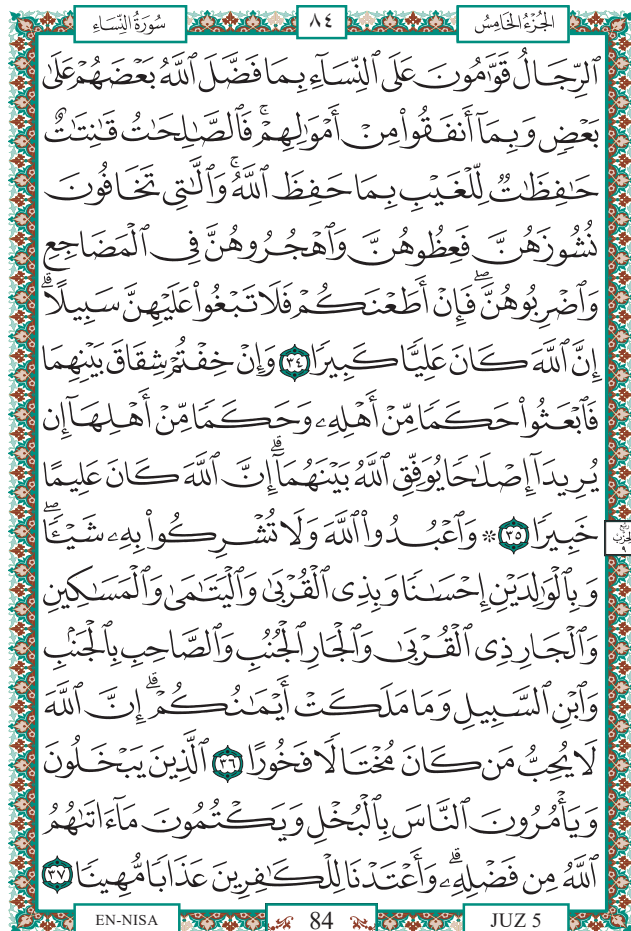 سُورَةُ النِّسَاءِ ٨٤ الجُزْءُ الخَامِسُ
ٱلرِّجَالُ قَوَّٰمُونَ عَلَى ٱلنِّسَآءِ بِمَا فَضَّلَ ٱللَّهُ بَعْضَهُمْ عَلَىٰ
بَعْضٖ وَبِمَآ أَنفَقُوا۟ مِنْ أَمْوَٰلِهِمْۚ فَٱلصَّٰلِحَٰتُ قَٰنِتَٰتٌ
حَٰفِظَٰتٞ لِّلْغَيْبِ بِمَا حَفِظَ ٱللَّهُۚ وَٱلَّٰتِى تَخَافُونَ
نُشُوزَهُنَّ فَعِظُوهُنَّ وَٱهْجُرُوهُنَّ فِى ٱلْمَضَاجِعِ
وَٱضْرِبُوهُنَّۖ فَإِنْ أَطَعْنَكُمْ فَلَا تَبْغُوا۟ عَلَيْهِنَّ سَبِيلًاۗ
إِنَّ ٱللَّهَ كَانَ عَلِيّٗا كَبِيرٗا ٣٤ وَإِنْ خِفْتُمْ شِقَاقَ بَيْنِهِمَا
فَٱبْعَثُوا۟ حَكَمٗا مِّنْ أَهْلِهِۦ وَحَكَمٗا مِّنْ أَهْلِهَآ إِن
يُرِيدَآ إِصْلَٰحٗا يُوَفِّقِ ٱللَّهُ بَيْنَهُمَآۗ إِنَّ ٱللَّهَ كَانَ عَلِيمًا
خَبِيرٗا ٣٥ ۞ وَٱعْبُدُوا۟ ٱللَّهَ وَلَا تُشْرِكُوا۟ بِهِۦ شَيْـٔٗاۖ
وَبِٱلْوَٰلِدَيْنِ إِحْسَٰنٗا وَبِذِى ٱلْقُرْبَىٰ وَٱلْيَتَٰمَىٰ وَٱلْمَسَٰكِينِ
وَٱلْجَارِ ذِى ٱلْقُرْبَىٰ وَٱلْجَارِ ٱلْجُنُبِ وَٱلصَّاحِبِ بِٱلْجَنۢبِ
وَٱبْنِ ٱلسَّبِيلِ وَمَا مَلَكَتْ أَيْمَٰنُكُمْۗ إِنَّ ٱللَّهَ
لَا يُحِبُّ مَن كَانَ مُخْتَالٗا فَخُورًا ٣٦ ٱلَّذِينَ يَبْخَلُونَ
وَيَأْمُرُونَ ٱلنَّاسَ بِٱلْبُخْلِ وَيَكْتُمُونَ مَآ ءَاتَىٰهُمُ
ٱللَّهُ مِن فَضْلِهِۦۗ وَأَعْتَدْنَا لِلْكَٰفِرِينَ عَذَابٗا مُّهِينٗا ٣٧
ربع
الحزب
٩
EN-NISA 84 JUZ 5